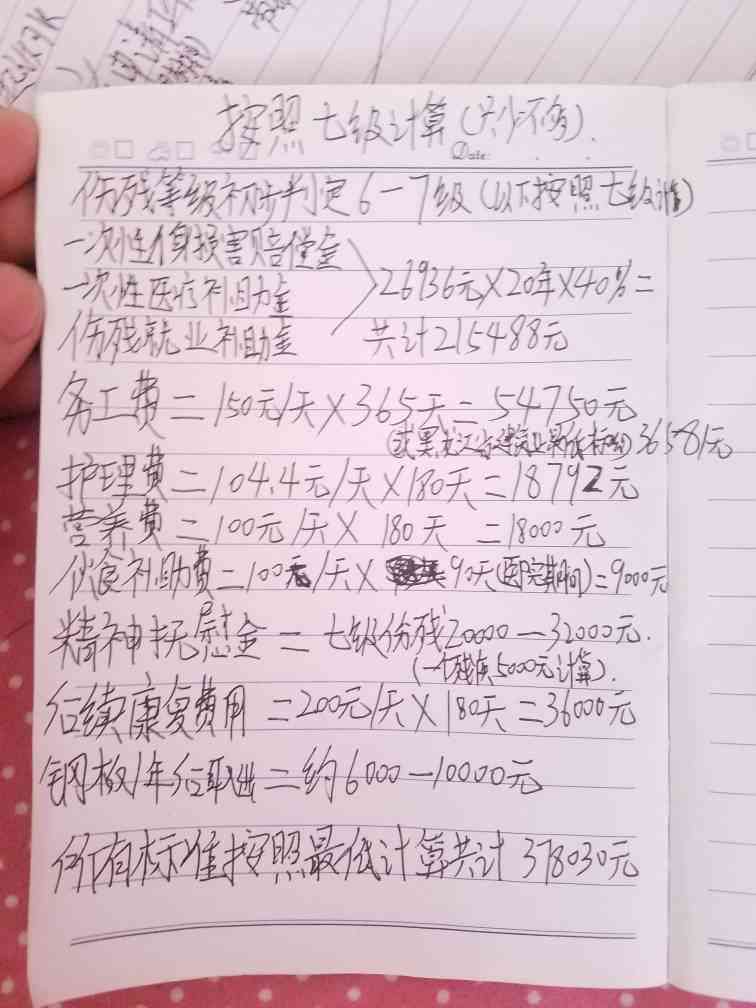 申请工
按照七级计算(只少不多).
Date:
伤残等级初步判定6-7级(以下按照七级计算)
一次性伤身损害赔偿金
一次性医疗补助金
26936元×20年×40%=
伤残就业补助金 共计215488元
务工费=150元/天×365天=54750元
(或黑龙江省建筑业最低标准)36581元
护理费=104.4元/天×180天=18792元
营养费=100元/天×180天=18000元
伙食补助费=100元/天×90天(医院期间)=9000元
精神抚慰金=七级伤残20000-32000元.
(一个残疾5000元计算).
后续康复费用=200元/天×180天=36000元
钢板1年后取出=约6000-10000元
所有标准按照最低计算共计378030元